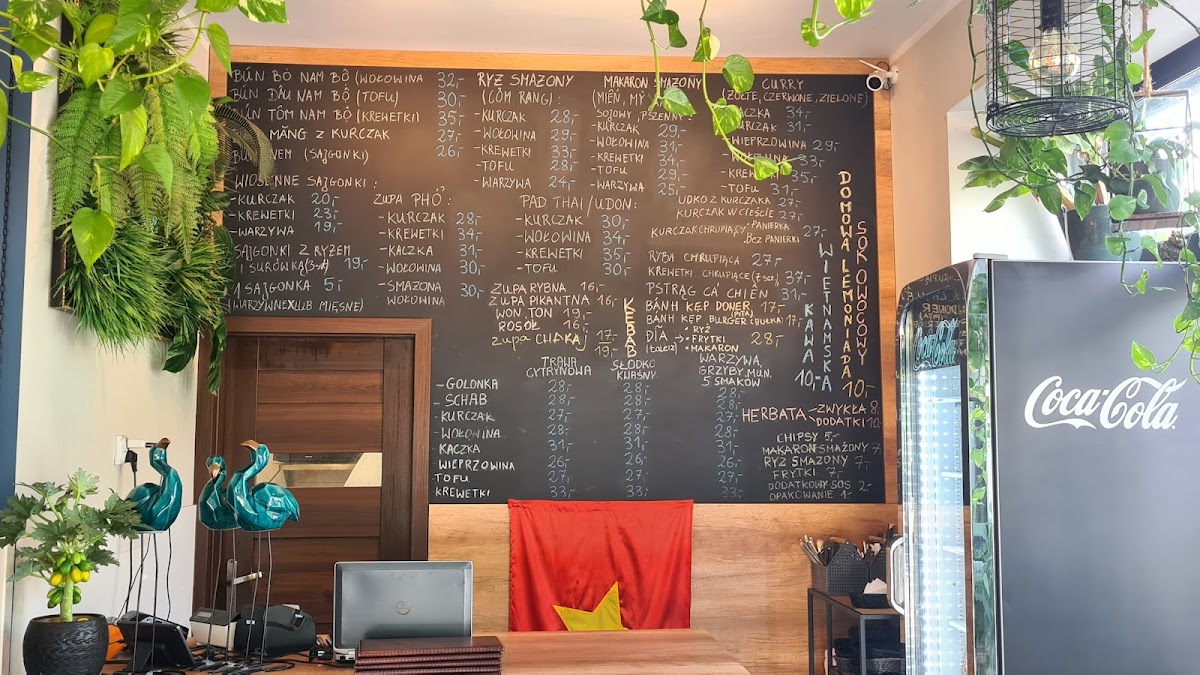 BÚN BÒ NAM BÔ (WOŁOWINA 32,-
BÚN DÂU NAM BÔ (TOFU) 30,-
BÚN TÔM NAM BÔ (KREWETKI) 35,-
MĂNG Z KURCZAK 27,-
(SAJGONKI) 26,-
WIOSENNE SAJGONKI:
-KURCZAK 20,-
-KREWETKI 23,-
-WARZYWA 19,-
SAJGONKI Z RYŻEM
I SURÓWKĄ 19,-
1 SAJGONKA 5,-
(WARZYWNE LUB MIĘSNE)
RYŻ SMAŻONY
(CÓM RANG):
-KURCZAK 28,-
-WOŁOWINA 29,-
-KREWETKI 33,-
-TOFU 28,-
-WARZYWA 24,-
MAKARON SMAŻONY
(MIÊN, MỲ
SOJOWY, PSZENNY
-KURCZAK 29,-
-WOŁOWINA 31,-
-KREWETKI 34,-
-TOFU 29,-
-WARZYWA 25,-
CURRY
(ŻÓŁTE, CZERWONE, ZIELONE)
KACZKA 34,-
KURCZAK 31,-
WIEPRZOWINA 29,-
WOŁOWINA 33,-
-KREWETKI 35,-
-TOFU 31,-
ZUPA PHỞ:
-KURCZAK 28,-
-KREWETKI 34,-
-KACZKA 31,-
-WOŁOWINA 30,-
-SMAŻONA WOŁOWINA 30,-
PAD THAI/UDON:
-KURCZAK 30,-
-WOŁOWINA 34,-
-KREWETKI 35,-
-TOFU 30,-
UDKO Z KURCZAKA 27,-
KURCZAK W CIEŚCIE 27,-
KURCZAK CHRUPIĄCY -PANIERKA 27,-
-BEZ PANIERKI
RYBA CHRUPIĄCA 27,-
KREWETKI CHRUPIĄCE (7 szt) 37,-
PSTRĄG CÁ CHIÊN 31,-
ZUPA RYBNA 16,-
ZUPA PIKANTNA 16,-
WON TON 19,-
ROSÓŁ 16,-
ZUPA CHAKAJ 17,-
19,-
KEBAB
BÁNH KẸP DONER (PITA) 17,-
BÁNH KẸP BURGER (BUŁKA) 17,-
DĨA (talerz) •RYŻ 28,-
•FRYTKI
•MAKARON
KAWA WIETNAMSKA 10,-
DOMOWA LEMONIADA
SOK OWOCOWY 10,-
TRAWA CYTRYNOWA
SŁODKO KWAŚNY
WARZYWA, GRZYBY MUN, 5 SMAKÓW
-GOLONKA 28,- 28,- 28,-
-SCHAB 28,- 28,- 28,-
-KURCZAK 27,- 27,- 27,-
-WOŁOWINA 28,- 28,- 28,-
KACZKA 31,- 31,- 31,-
WIEPRZOWINA 26,- 26,- 26,-
TOFU 27,- 27,- 27,-
KREWETKI 33,- 33,- 33,-
HERBATA -ZWYKŁA 8,-
-DODATKI 10,-
CHIPSY 5,-
MAKARON SMAŻONY 7,-
RYŻ SMAŻONY 7,-
FRYTKI 7,-
DODATKOWY SOS 2,-
OPAKOWANIE 1,-
Coca-Cola